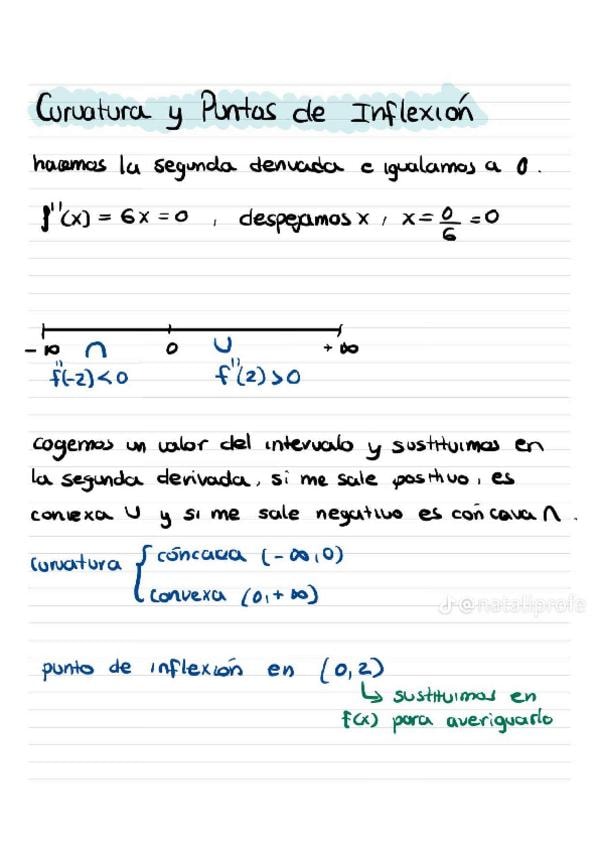 Curvatura y Puntos de Inflexión
hacemos la segunda derivada e igualamos a 0.
f''(x) = 6x = 0 , despejamos x , x = 0/6 = 0
- ∞ ∩ 0 ∪ + ∞
f''(-2) < 0 f''(2) > 0
cogemos un valor del intervalo y sustituimos en
la segunda derivada, si me sale positivo, es
convexa ∪ y si me sale negativo es cóncava ∩.
curvatura { cóncava (-∞, 0)
convexa (0, +∞)
@nataliprofe
punto de inflexión en (0, 2)
↳ sustituimos en
f(x) para averiguarlo